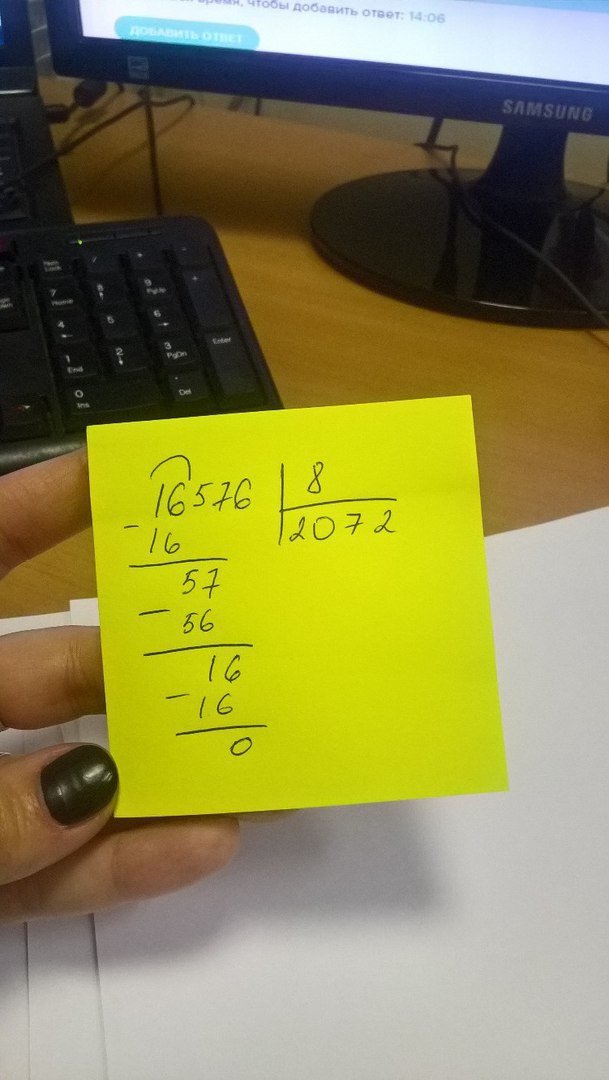 время, чтобы добавить ответ: 14:06
ДОБАВИТЬ ОТВЕТ
SAMSUNG
Num Lock / * -
7 Home 8 ↑ 9 PgUp +
4 ← 5 6 →
1 End 2 ↓ 3 PgDn Enter
0 Ins . Del
16576 | 8
- 16 2072
57
- 56
16
- 16
0